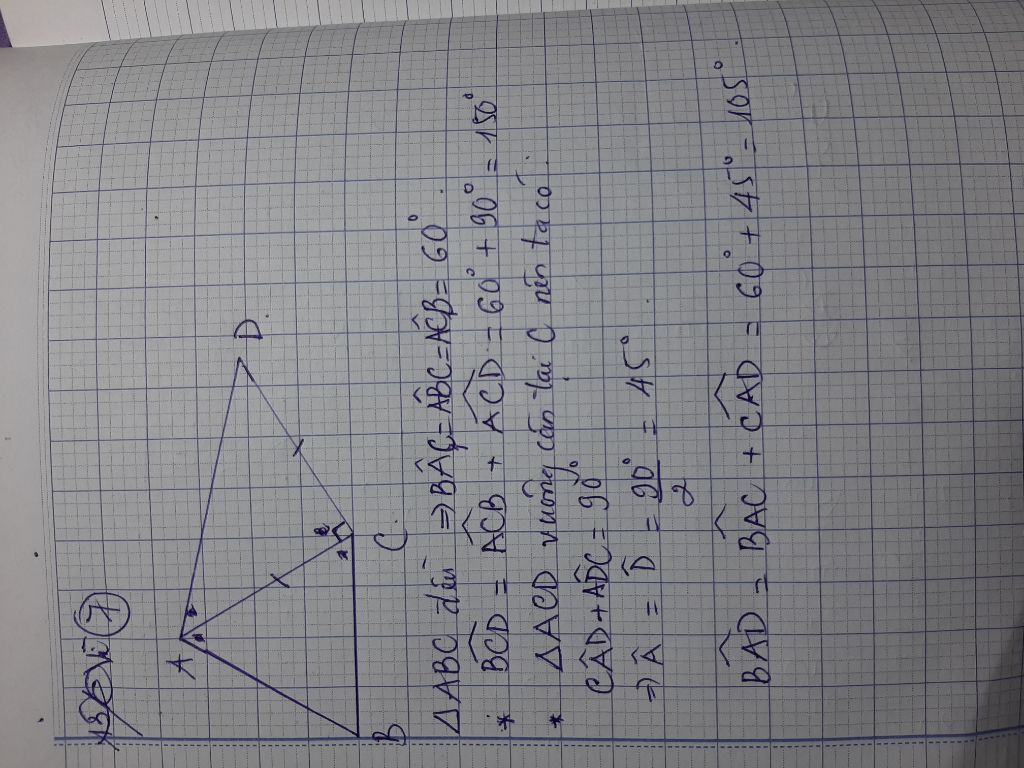 Bài 7
A
D.
B
C.
ΔABC đều ⇒ BÂC = AB̂C = AĈB = 60°.
* BĈD = AĈB + AĈD = 60° + 90° = 150°
* ΔACD vuông cân tại C nên ta có:
CÂD + AD̂C = 90°
⇒ Â = D̂ = 90°/2 = 45°.
BÂD = BÂC + CÂD = 60° + 45° = 105°.